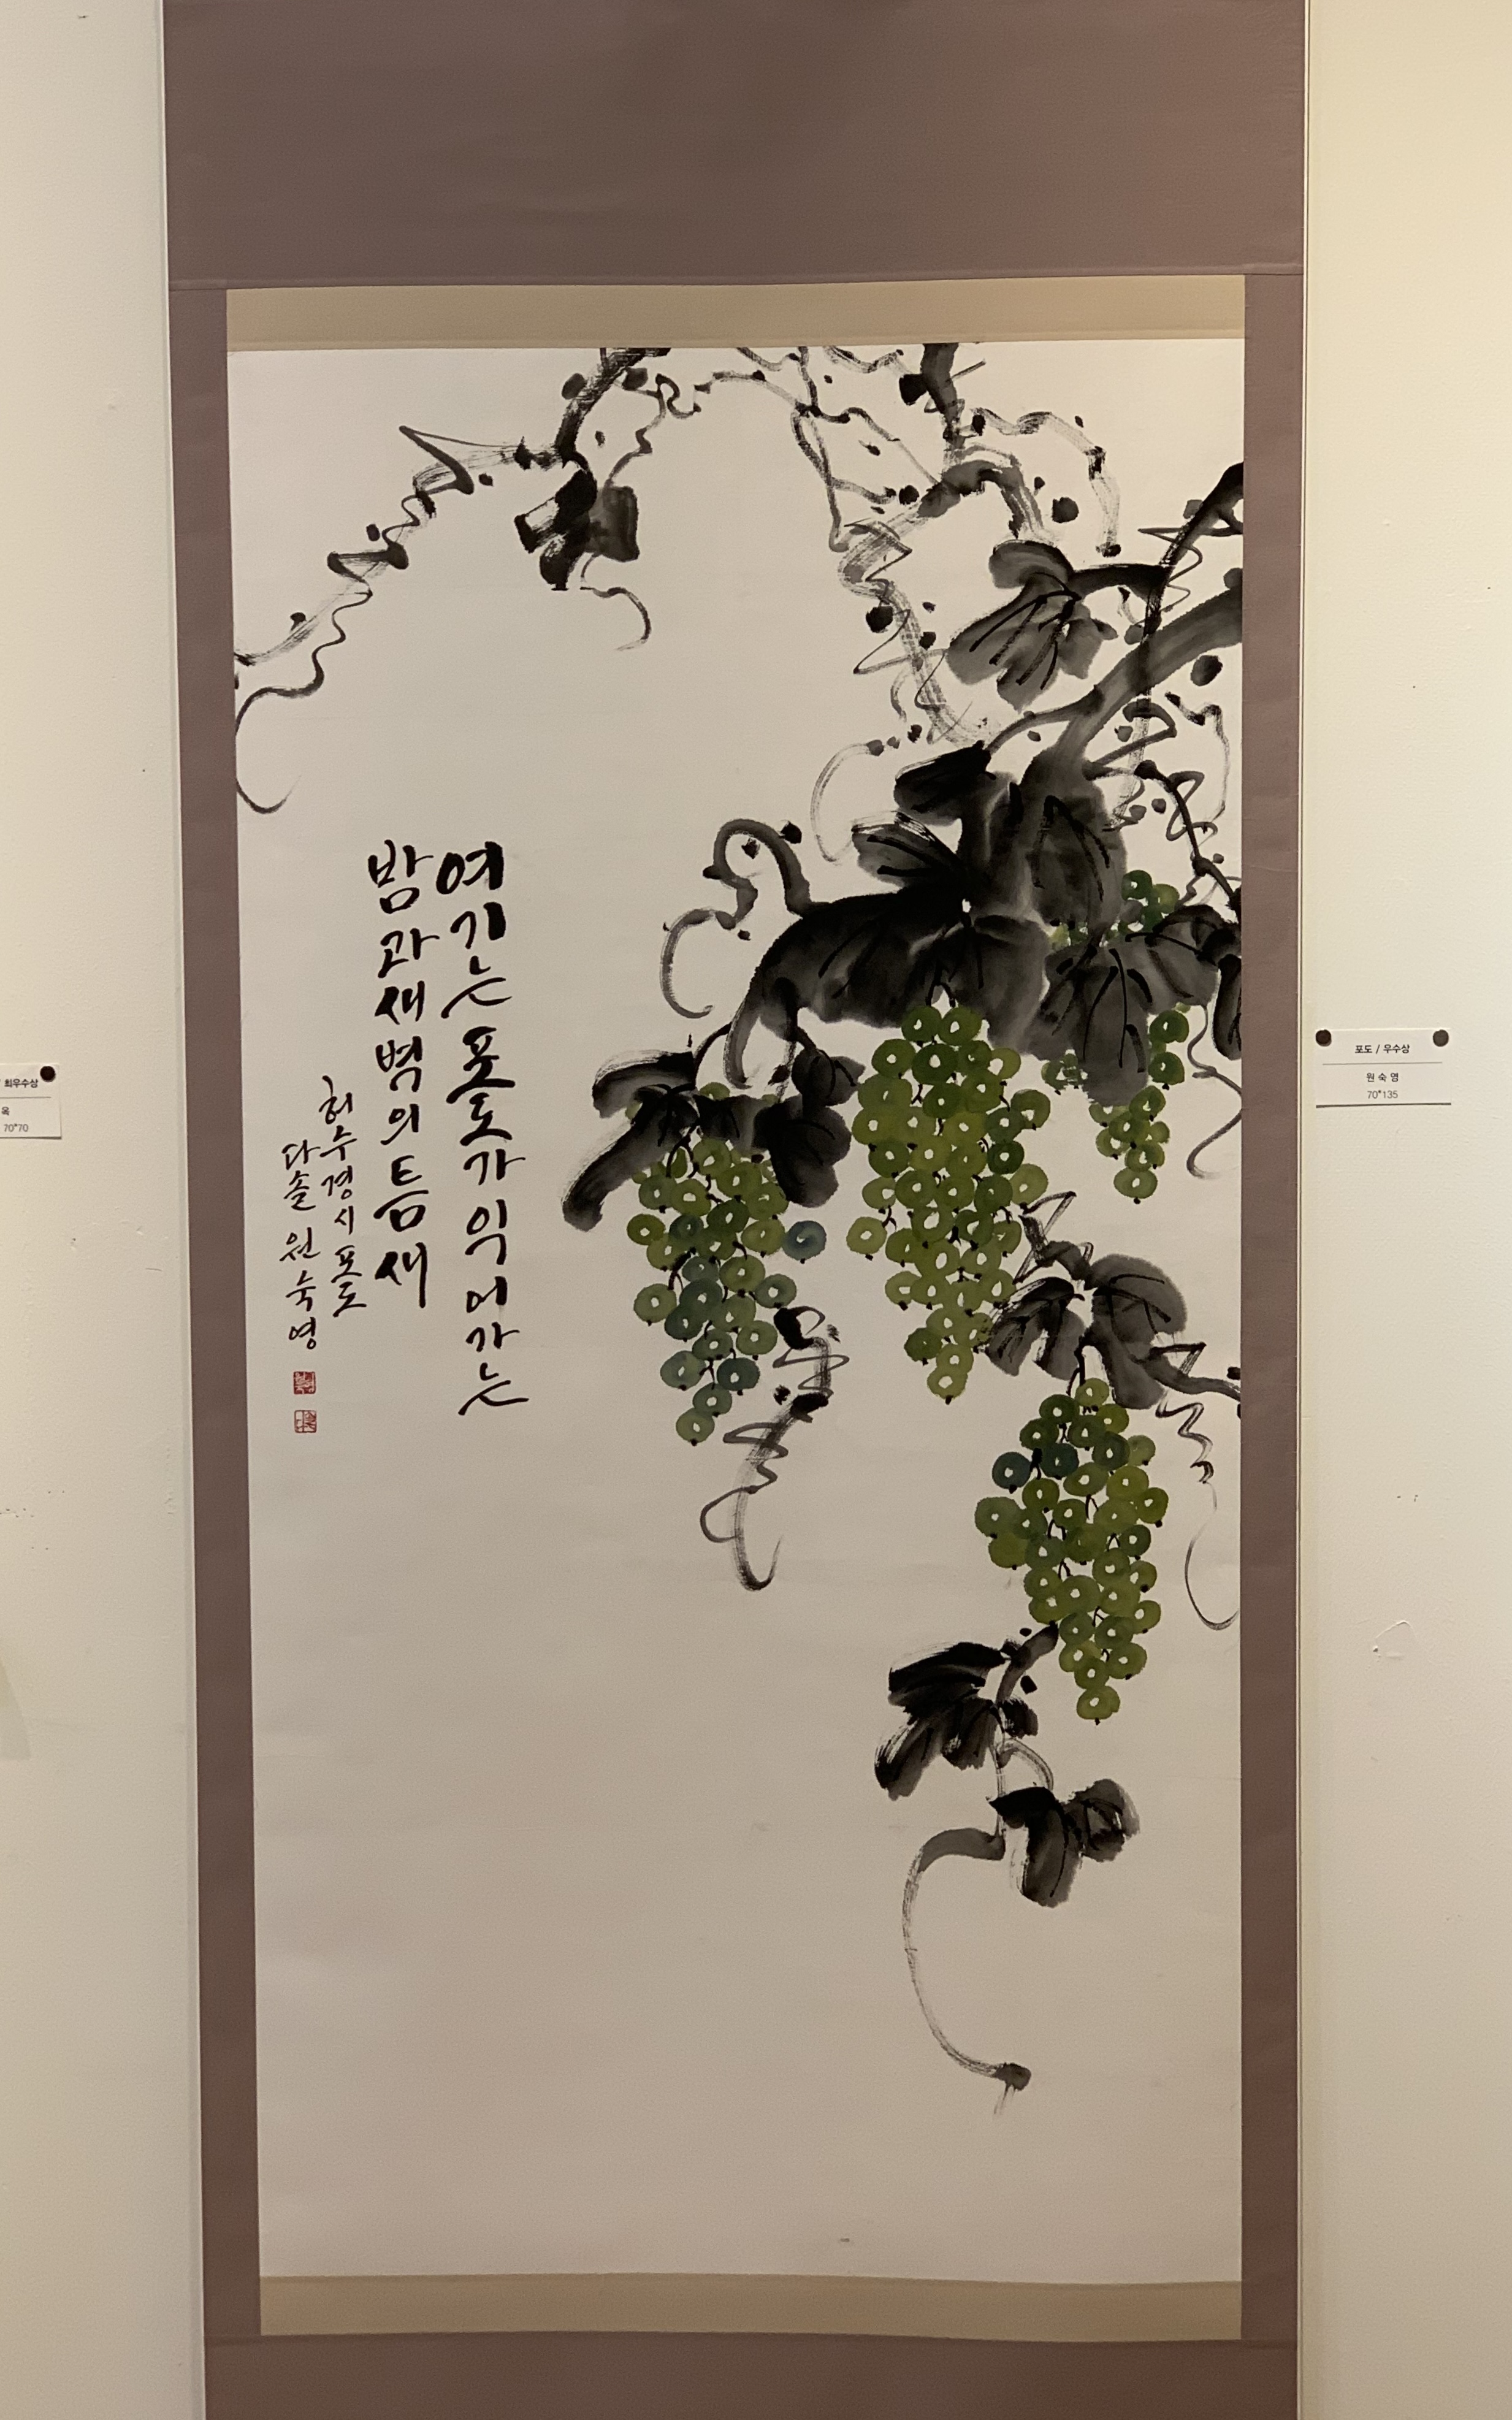 여기는 포도가 익어가는
밤과 새벽의 틈새
허수경 시 포도
다솔 원숙영
포도 / 우수상
원 숙 영
70*135
최우수상
옥
70*70